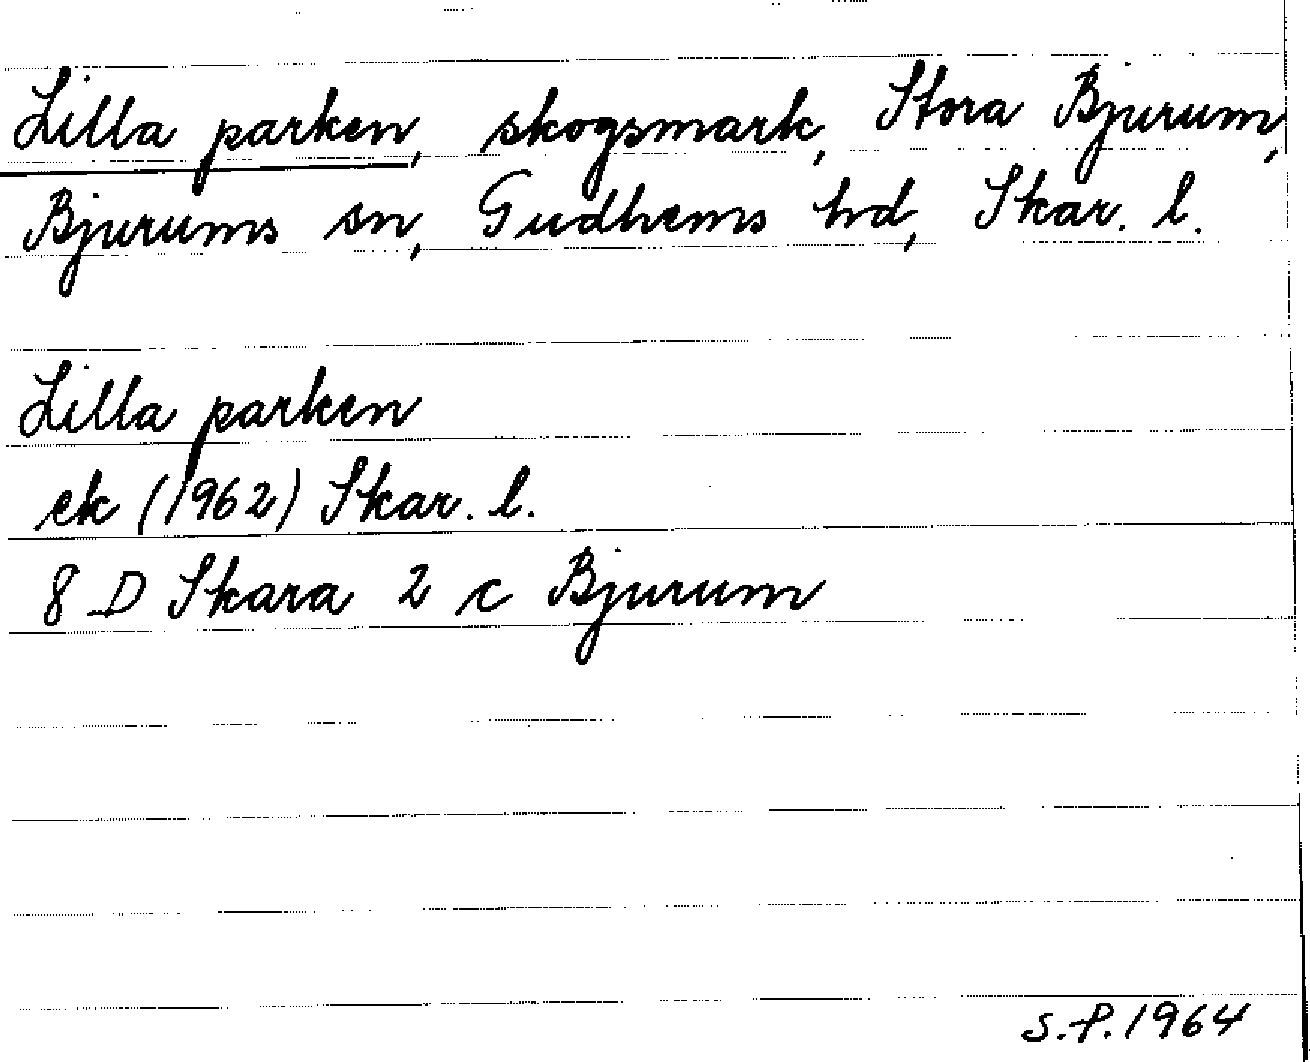 Lilla parken, skogsmark, Stora Bjurum,
Bjurums sn, Gudhems hd, Skar. l.
Lilla parken
ek (1962) Skar. l.
8 D Skara 2 c Bjurum
S.P. 1964